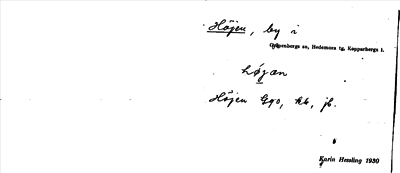 Höjen, by i
Gylpenbergs sn, Hedemora tg, Kopparbergs l.
højæn
Höjen Gγo, Kb, jb.
Karin Hessling 1930